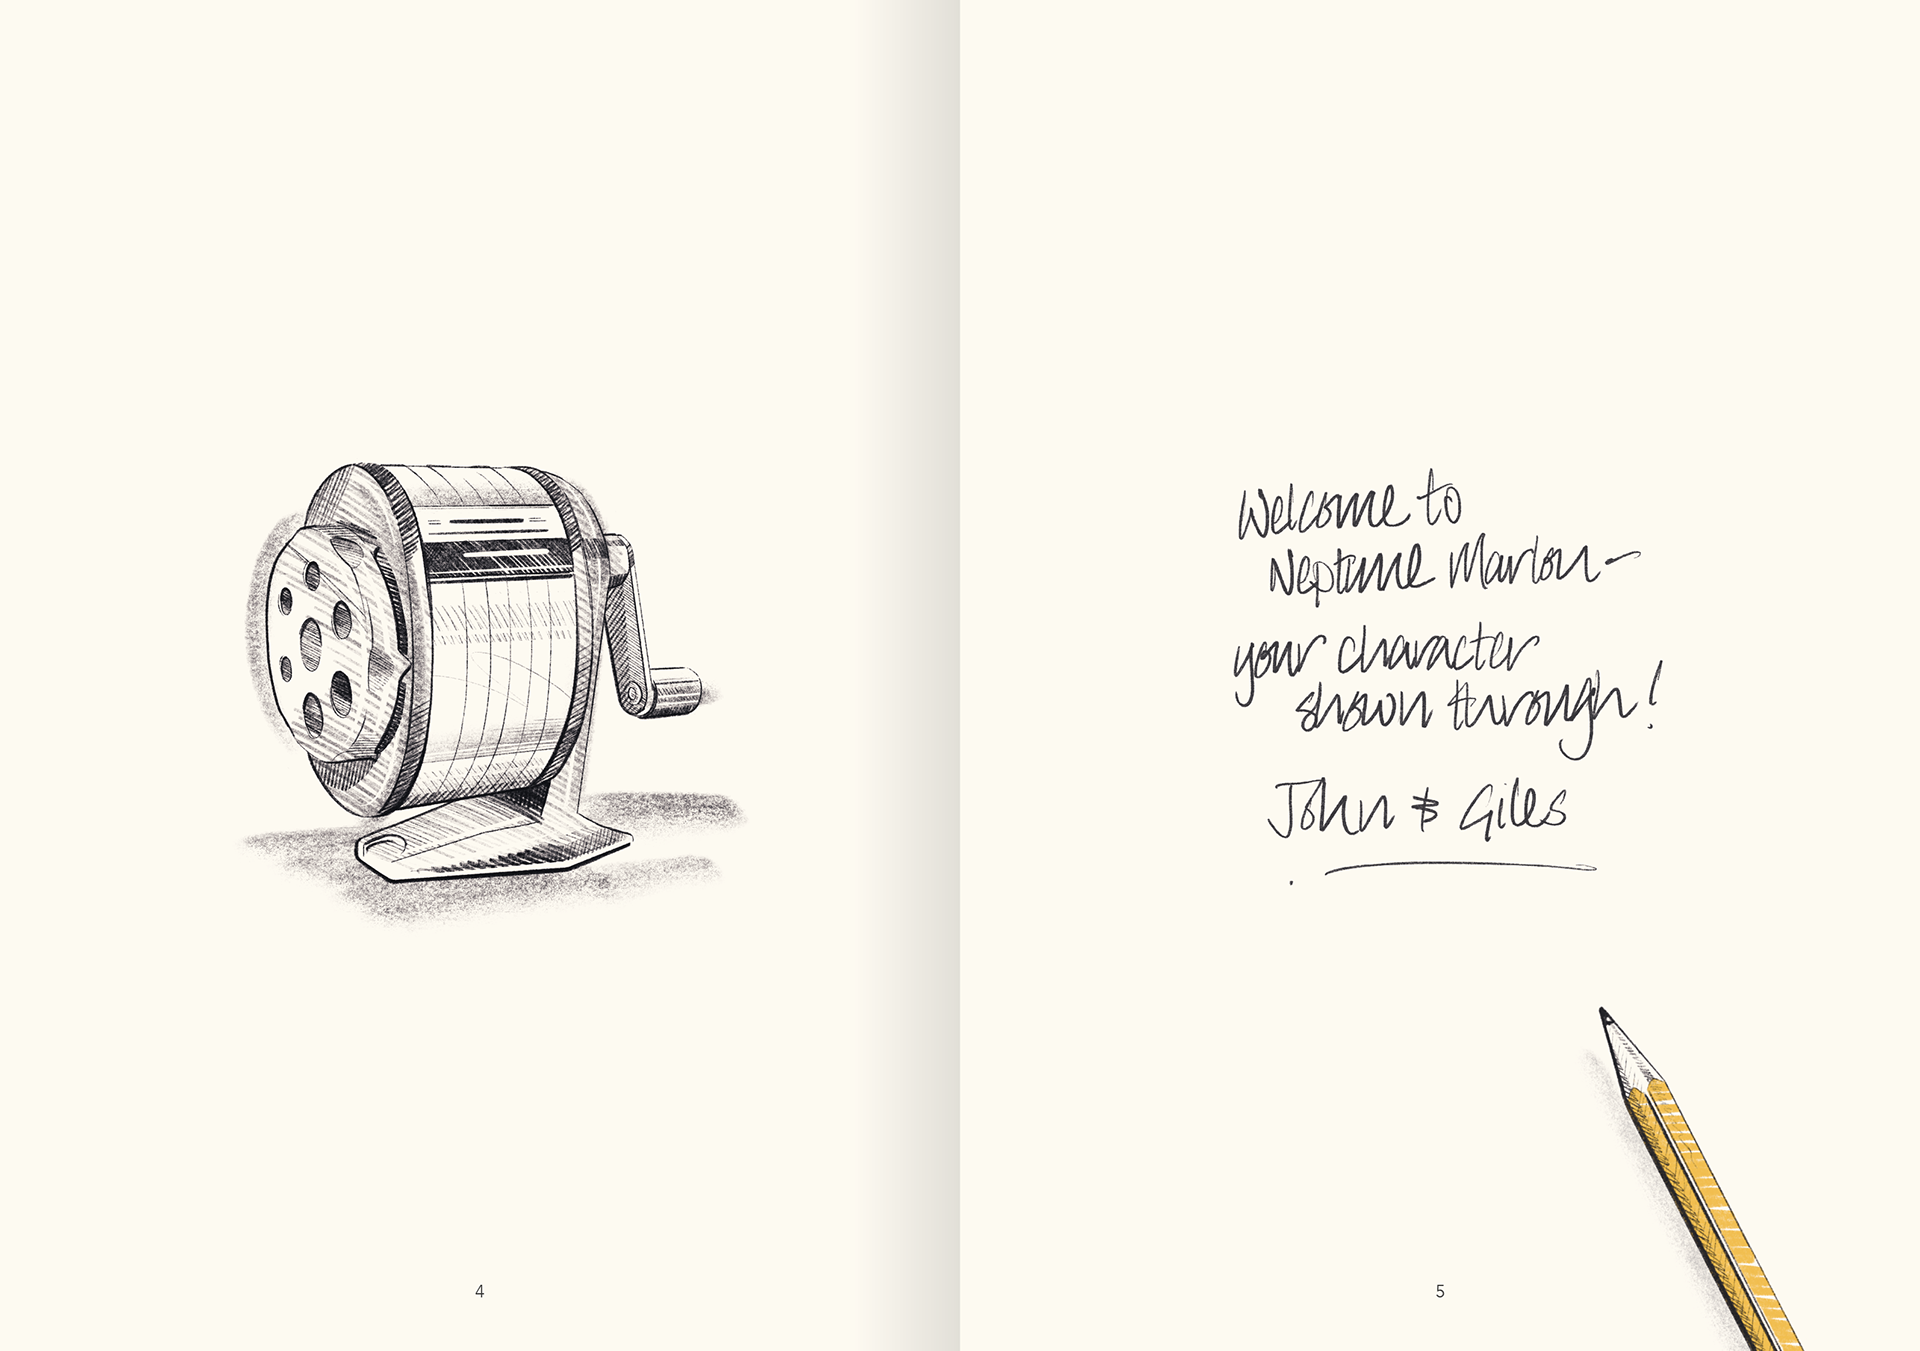 Welcome to
Neptune Marlon-
your character
shown through!
John & Giles
4
5